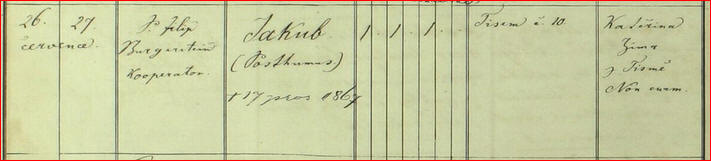 26. 27
července.
P. Filip
Burgerstein
Kooperator.
Jakub
(Posthumus)
†17 pros 1867
1. 1. 1.
Tisem č. 10.
Kateřina
Zima
z Tismě
Non exam.